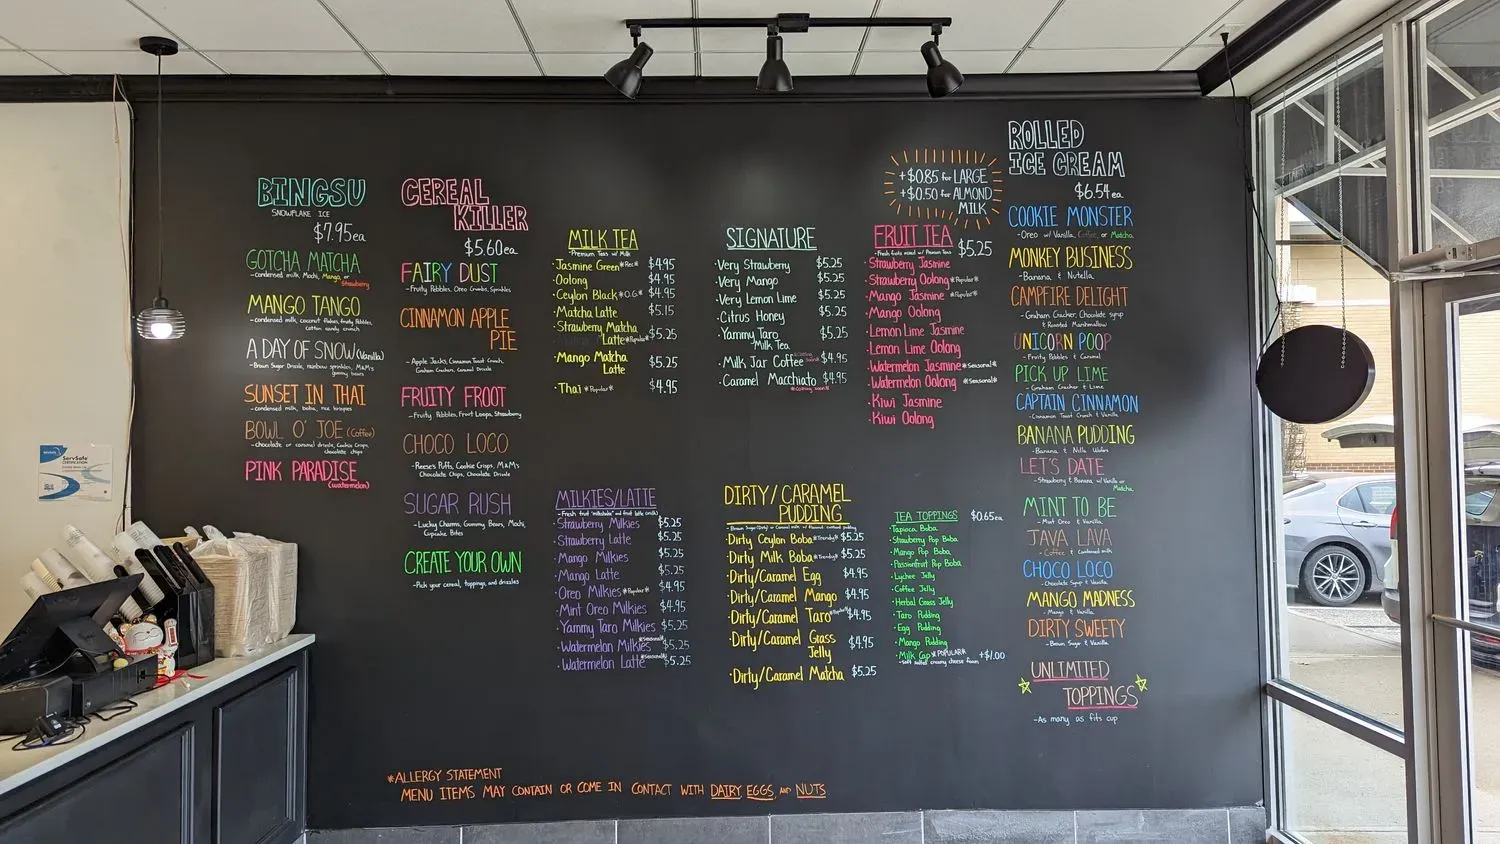 BINGSU
SNOWFLAKE ICE
$7.95ea
GOTCHA MATCHA
-condensed milk, Mochi, Mango, or
Strawberry
MANGO TANGO
-condensed milk, coconut flakes, fruity Pebbles,
cotton candy crunch
A DAY OF SNOW (Vanilla)
-Brown Sugar Drizzle, rainbow sprinkles, M&M's
gummy bears
SUNSET IN THAI
-condensed milk, boba, rice krispies
BOWL O' JOE (Coffee)
-chocolate or caramel drizzle, Cookie Crisps,
chocolate chips
PINK PARADISE
(watermelon)
CEREAL
KILLER
$5.60ea
FAIRY DUST
-Fruity Pebbles, Oreo Crumbs, Sprinkles
CINNAMON APPLE
PIE
-Apple Jacks, Cinnamon Toast Crunch,
Graham Crackers, Caramel Drizzle
FRUITY FROOT
-Fruity Pebbles, Froot Loops, Strawberry
CHOCO LOCO
-Reese's Puffs, Cookie Crisps, M&M's
Chocolate Chips, Chocolate Drizzle
SUGAR RUSH
-Lucky Charms, Gummy Bears, Mochi,
Cupcake Bites
CREATE YOUR OWN
-Pick your cereal, toppings, and drizzles
MILK TEA
-Premium Teas w/ Milk
·Jasmine Green *Rec* $4.95
·Oolong $4.95
·Ceylon Black *O.G.* $4.95
·Matcha Latte $5.15
·Strawberry Matcha
Latte *Popular* $5.25
·Mango Matcha
Latte $5.25
·Thai *Popular* $4.95
SIGNATURE
·Very Strawberry $5.25
·Very Mango $5.25
·Very Lemon Lime $5.25
·Citrus Honey $5.25
·Yummy Taro $5.25
Milk Tea
·Milk Jar Coffee $4.95
·Caramel Macchiato $4.95
*Coming Soon*
+$0.85 for LARGE
+$0.50 for ALMOND
MILK
FRUIT TEA $5.25
-Fresh fruits mixed w/ Premium Teas
·Strawberry Jasmine
·Strawberry Oolong *Popular*
·Mango Jasmine *Popular*
·Mango Oolong
·Lemon Lime Jasmine
·Lemon Lime Oolong
·Watermelon Jasmine *Seasonal*
·Watermelon Oolong *Seasonal*
·Kiwi Jasmine
·Kiwi Oolong
MILKIES/LATTE
-Fresh fruit "milkshake" and fruit latte
·Strawberry Milkies $5.25
·Strawberry Latte $5.25
·Mango Milkies $5.25
·Mango Latte $5.25
·Oreo Milkies *Popular* $4.95
·Mint Oreo Milkies $4.95
·Yummy Taro Milkies $5.25
·Watermelon Milkies *Seasonal* $5.25
·Watermelon Latte *Seasonal* $5.25
DIRTY/CARAMEL
PUDDING
-Brown Sugar (Dirty) or Caramel milk w/ flavored custard pudding
·Dirty Ceylon Boba *Trendy* $5.25
·Dirty Milk Boba *Trendy* $5.25
·Dirty/Caramel Egg $4.95
·Dirty/Caramel Mango $4.95
·Dirty/Caramel Taro *Popular* $4.95
·Dirty/Caramel Grass
Jelly $4.95
·Dirty/Caramel Matcha $5.25
TEA TOPPINGS $0.65ea
·Tapioca Boba
·Strawberry Pop Boba
·Mango Pop Boba
·Passionfruit Pop Boba
·Lychee Jelly
·Coffee Jelly
·Herbal Grass Jelly
·Taro Pudding
·Egg Pudding
·Mango Pudding
·Milk Cap *POPULAR* +$1.00
-soft salted creamy cheese foam
ROLLED
ICE CREAM
$6.54ea
COOKIE MONSTER
-Oreo w/ Vanilla, Coffee, or Matcha
MONKEY BUSINESS
-Banana & Nutella
CAMPFIRE DELIGHT
-Graham Cracker, Chocolate syrup
& Roasted Marshmallow
UNICORN POOP
-Fruity Pebbles & Caramel
PICK UP LIME
-Graham Cracker & Lime
CAPTAIN CINNAMON
-Cinnamon Toast Crunch & Vanilla
BANANA PUDDING
-Banana & Nilla Wafers
LET'S DATE
-Strawberry & Banana w/ Vanilla or
Matcha
MINT TO BE
-Mint Oreo & Vanilla
JAVA LAVA
-Coffee & Condensed milk
CHOCO LOCO
-Chocolate Syrup & Vanilla
MANGO MADNESS
-Mango & Vanilla
DIRTY SWEETY
-Brown Sugar & Vanilla
UNLIMITED
TOPPINGS
-As many as fits cup
*ALLERGY STATEMENT
MENU ITEMS MAY CONTAIN OR COME IN CONTACT WITH DAIRY, EGGS, AND NUTS
ServSafe
CERTIFICATION